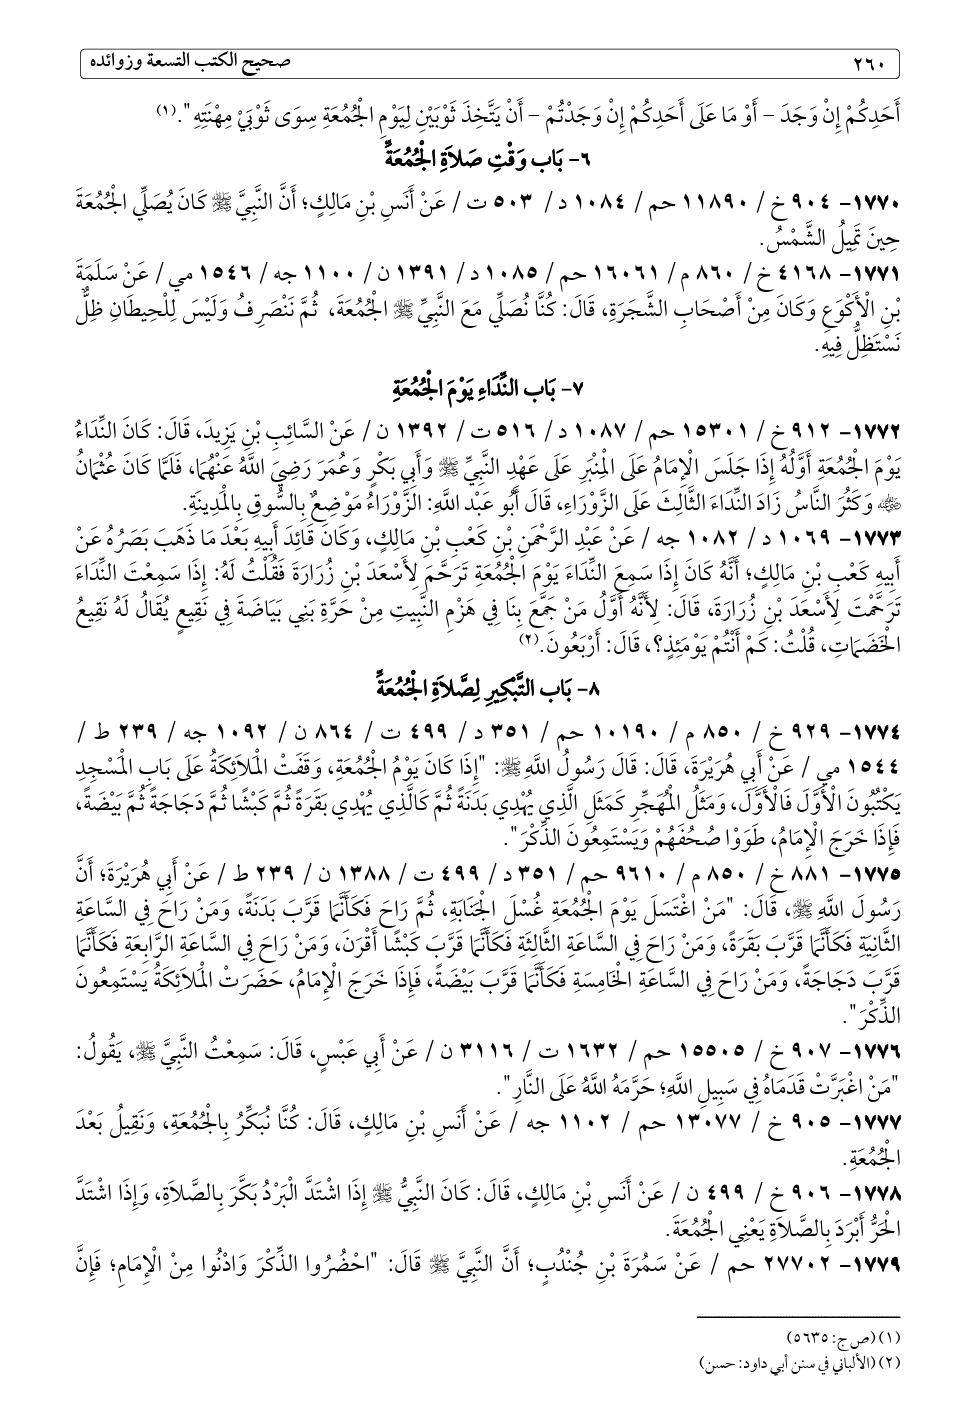 ٢٦٠ صحيح الكتب التسعة وزوائده
أَحَدِكُمْ إِنْ وَجَدَ – أَوْ مَا عَلَى أَحَدِكُمْ إِنْ وَجَدْتُمْ – أَنْ يَتَّخِذَ ثَوْبَيْنِ لِيَوْمِ الْجُمُعَةِ سِوَى ثَوْبَيْ مِهْنَتِهِ".(١)
٦- بَاب وَقْتِ صَلاَةِ الْجُمُعَةِ
١٧٧٠- ٩٠٤ خ / ١١٨٩٠ حم / ١٠٨٤ د / ٥٠٣ ت / عَنْ أَنَسِ بْنِ مَالِكٍ؛ أَنَّ النَّبِيَّ ﷺ كَانَ يُصَلِّي الْجُمُعَةَ
حِينَ تَمِيلُ الشَّمْسُ.
١٧٧١- ٤١٦٨ خ / ٨٦٠ م / ١٦٠٦١ حم / ١٠٨٥ د / ١٣٩١ ن / ١١٠٠ جه / ١٥٤٦ مي / عَنْ سَلَمَةَ
بْنِ الْأَكْوَعِ وَكَانَ مِنْ أَصْحَابِ الشَّجَرَةِ، قَالَ: كُنَّا نُصَلِّي مَعَ النَّبِيِّ ﷺ الْجُمُعَةَ، ثُمَّ نَنْصَرِفُ وَلَيْسَ لِلْحِيطَانِ ظِلٌّ
نَسْتَظِلُّ فِيهِ.
٧- بَاب النِّدَاءِ يَوْمَ الْجُمُعَةِ
١٧٧٢- ٩١٢ خ / ١٥٣٠١ حم / ١٠٨٧ د / ٥١٦ ت / ١٣٩٢ ن / عَنْ السَّائِبِ بْنِ يَزِيدَ، قَالَ: كَانَ النِّدَاءُ
يَوْمَ الْجُمُعَةِ أَوَّلُهُ إِذَا جَلَسَ الْإِمَامُ عَلَى الْمِنْبَرِ عَلَى عَهْدِ النَّبِيِّ ﷺ وَأَبِي بَكْرٍ وَعُمَرَ رَضِيَ اللَّهُ عَنْهُمَا، فَلَمَّا كَانَ عُثْمَانُ
﵁ وَكَثُرَ النَّاسُ زَادَ النِّدَاءَ الثَّالِثَ عَلَى الزَّوْرَاءِ، قَالَ أَبُو عَبْد اللَّهِ: الزَّوْرَاءُ مَوْضِعٌ بِالسُّوقِ بِالْمَدِينَةِ.
١٧٧٣- ١٠٦٩ د / ١٠٨٢ جه / عَنْ عَبْدِ الرَّحْمَنِ بْنِ كَعْبِ بْنِ مَالِكٍ، وَكَانَ قَائِدَ أَبِيهِ بَعْدَ مَا ذَهَبَ بَصَرُهُ عَنْ
أَبِيهِ كَعْبِ بْنِ مَالِكٍ؛ أَنَّهُ كَانَ إِذَا سَمِعَ النِّدَاءَ يَوْمَ الْجُمُعَةِ تَرَحَّمَ لِأَسْعَدَ بْنِ زُرَارَةَ فَقُلْتُ لَهُ: إِذَا سَمِعْتَ النِّدَاءَ
تَرَحَّمْتَ لِأَسْعَدَ بْنِ زُرَارَةَ، قَالَ: لِأَنَّهُ أَوَّلُ مَنْ جَمَّعَ بِنَا فِي هَزْمِ النَّبِيتِ مِنْ حَرَّةِ بَنِي بَيَاضَةَ فِي نَقِيعٍ يُقَالُ لَهُ نَقِيعُ
الْخَضَمَاتِ، قُلْتُ: كَمْ أَنْتُمْ يَوْمَئِذٍ؟، قَالَ: أَرْبَعُونَ.(٢)
٨- بَاب التَّبْكِيرِ لِصَّلاَةِ الْجُمُعَةِ
١٧٧٤- ٩٢٩ خ / ٨٥٠ م / ١٠١٩٠ حم / ٣٥١ د / ٤٩٩ ت / ٨٦٤ ن / ١٠٩٢ جه / ٢٣٩ ط /
١٥٤٤ مي / عَنْ أَبِي هُرَيْرَةَ، قَالَ: قَالَ رَسُولُ اللَّهِ ﷺ: "إِذَا كَانَ يَوْمُ الْجُمُعَةِ، وَقَفَتْ الْمَلاَئِكَةُ عَلَى بَابِ الْمَسْجِدِ
يَكْتُبُونَ الْأَوَّلَ فَالْأَوَّلَ، وَمَثَلُ الْمُهَجِّرِ كَمَثَلِ الَّذِي يُهْدِي بَدَنَةً ثُمَّ كَالَّذِي يُهْدِي بَقَرَةً ثُمَّ كَبْشًا ثُمَّ دَجَاجَةً ثُمَّ بَيْضَةً،
فَإِذَا خَرَجَ الْإِمَامُ، طَوَوْا صُحُفَهُمْ وَيَسْتَمِعُونَ الذِّكْرَ".
١٧٧٥- ٨٨١ خ / ٨٥٠ م / ٩٦١٠ حم / ٣٥١ د / ٤٩٩ ت / ١٣٨٨ ن / ٢٣٩ ط / عَنْ أَبِي هُرَيْرَةَ؛ أَنَّ
رَسُولَ اللَّهِ ﷺ، قَالَ: "مَنْ اغْتَسَلَ يَوْمَ الْجُمُعَةِ غُسْلَ الْجَنَابَةِ، ثُمَّ رَاحَ فَكَأَنَّمَا قَرَّبَ بَدَنَةً، وَمَنْ رَاحَ فِي السَّاعَةِ
الثَّانِيَةِ فَكَأَنَّمَا قَرَّبَ بَقَرَةً، وَمَنْ رَاحَ فِي السَّاعَةِ الثَّالِثَةِ فَكَأَنَّمَا قَرَّبَ كَبْشًا أَقْرَنَ، وَمَنْ رَاحَ فِي السَّاعَةِ الرَّابِعَةِ فَكَأَنَّمَا
قَرَّبَ دَجَاجَةً، وَمَنْ رَاحَ فِي السَّاعَةِ الْخَامِسَةِ فَكَأَنَّمَا قَرَّبَ بَيْضَةً، فَإِذَا خَرَجَ الْإِمَامُ، حَضَرَتْ الْمَلاَئِكَةُ يَسْتَمِعُونَ
الذِّكْرَ".
١٧٧٦- ٩٠٧ خ / ١٥٥٠٥ حم / ١٦٣٢ ت / ٣١١٦ ن / عَنْ أَبِي عَبْسٍ، قَالَ: سَمِعْتُ النَّبِيَّ ﷺ، يَقُولُ:
"مَنْ اغْبَرَّتْ قَدَمَاهُ فِي سَبِيلِ اللَّهِ؛ حَرَّمَهُ اللَّهُ عَلَى النَّارِ".
١٧٧٧- ٩٠٥ خ / ١٣٠٧٧ حم / ١١٠٢ جه / عَنْ أَنَسِ بْنِ مَالِكٍ، قَالَ: كُنَّا نُبَكِّرُ بِالْجُمُعَةِ، وَنَقِيلُ بَعْدَ
الْجُمُعَةِ.
١٧٧٨- ٩٠٦ خ / ٤٩٩ ن / عَنْ أَنَسِ بْنِ مَالِكٍ، قَالَ: كَانَ النَّبِيُّ ﷺ إِذَا اشْتَدَّ الْبَرْدُ بَكَّرَ بِالصَّلاَةِ، وَإِذَا اشْتَدَّ
الْحَرُّ أَبْرَدَ بِالصَّلاَةِ يَعْنِي الْجُمُعَةَ.
١٧٧٩- ٢٧٧٠٢ حم / عَنْ سَمُرَةَ بْنِ جُنْدُبٍ؛ أَنَّ النَّبِيَّ ﷺ قَالَ: "احْضُرُوا الذِّكْرَ وَادْنُوا مِنْ الْإِمَامِ؛ فَإِنَّ
(١) (ص ج: ٥٦٣٥)
(٢) (الألباني في سنن أبي داود: حسن)